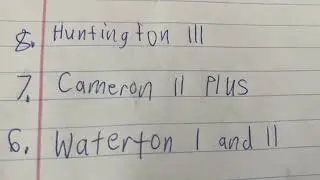 8. Huntington III
7. Cameron II Plus
6. Waterton I and II